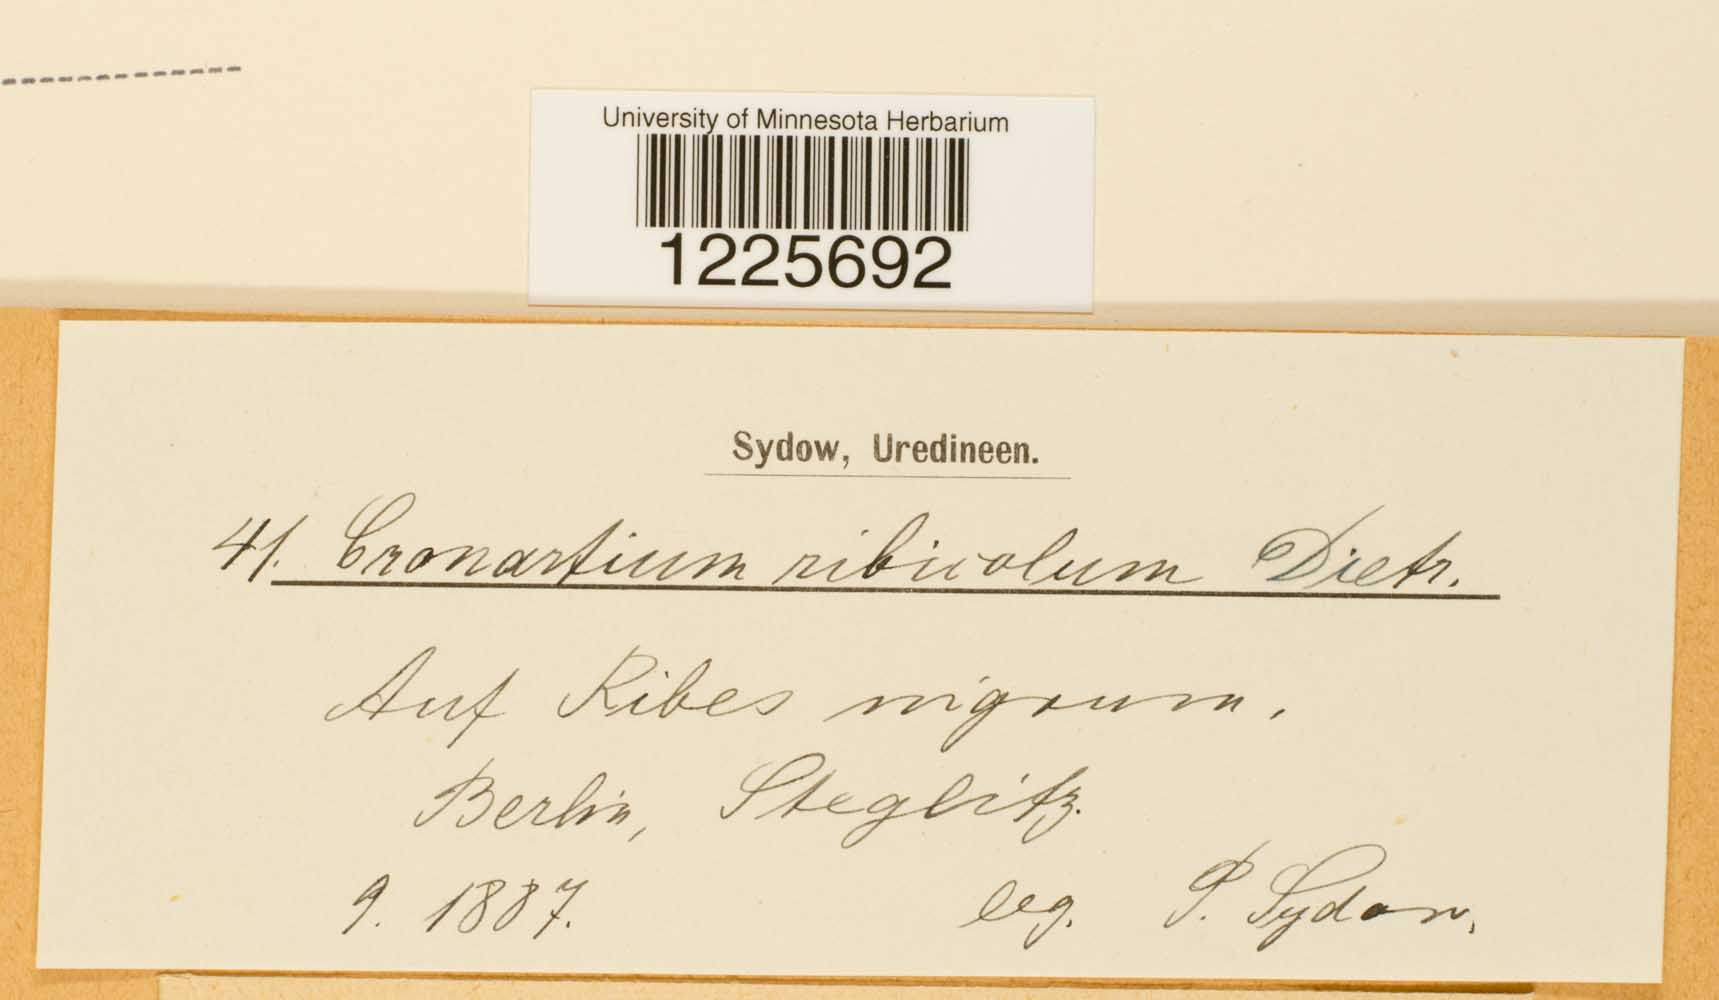 University of Minnesota Herbarium
1225692
Sydow, Uredineen.
41. Cronartium ribicolum Dietr.
Auf Ribes nigrum.
Berlin, Steglitz.
9. 1887. leg. P. Sydow.